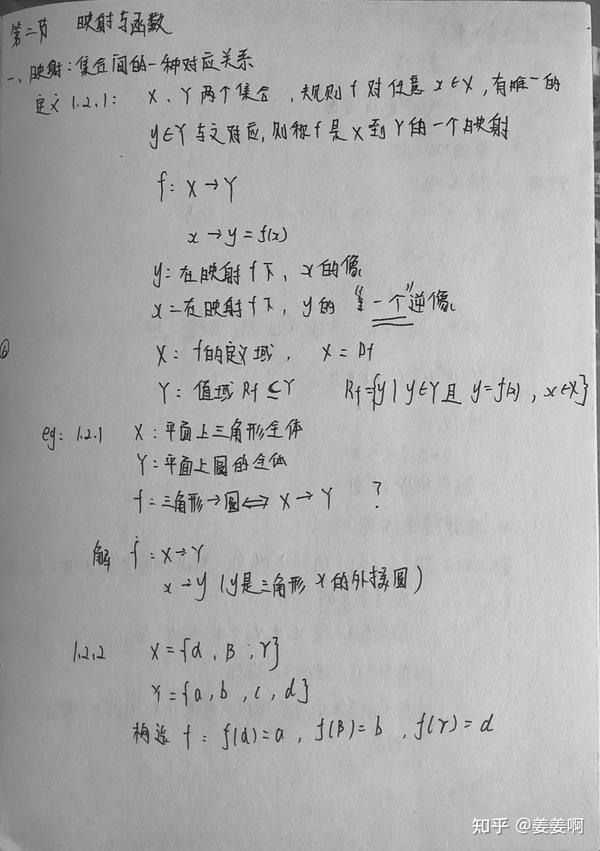 第二节 映射与函数
一、映射：集合间的一种对应关系
定义1.2.1： X、Y两个集合，规则f对任意x∈X，有唯一的
y∈Y与之对应，则称f是X到Y的一个映射
f：X→Y
x→y=f(x)
y：在映射f下，x的像
x：在映射f下，y的“一个”逆像
X：f的定义域， X=Df
Y：值域Rf⊆Y Rf={y|y∈Y且y=f(x)，x∈X}
eg：1.2.1 X：平面上三角形全体
Y：平面上圆的全体
f=三角形→圆⟺X→Y ？
解 f：X→Y
x→y（y是三角形x的外接圆）
1.2.2 X={α，β，γ}
Y={a，b，c，d}
构造f：f(α)=a，f(β)=b，f(γ)=d
知乎 @姜姜啊